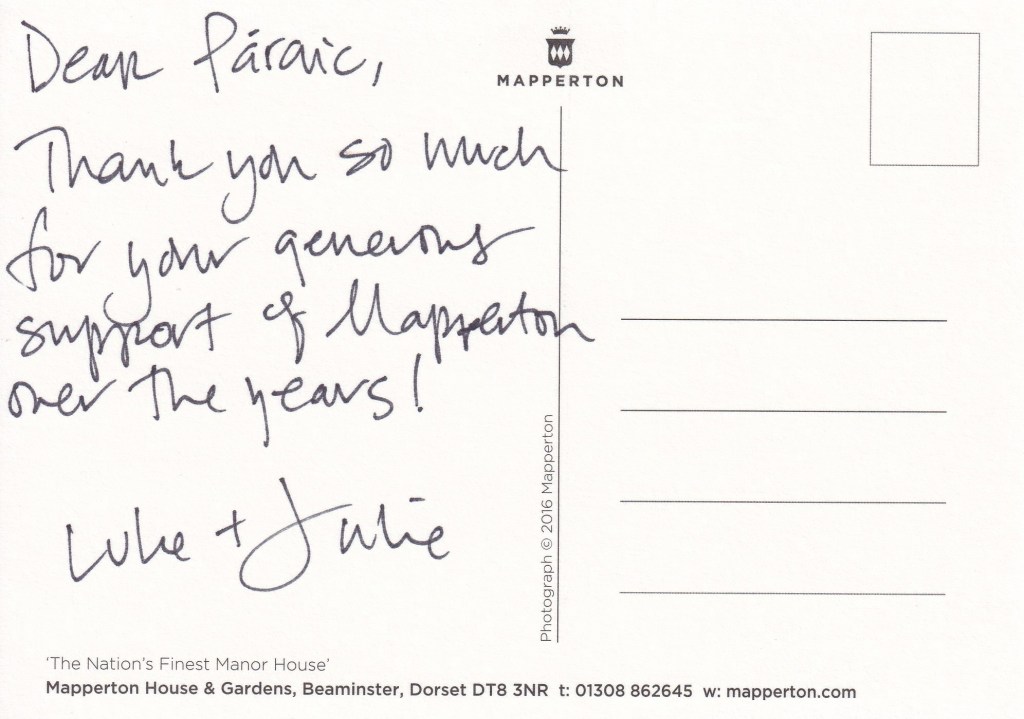 Dear Páraic,
Thank you so much
for your generous
support of Mapperton
over the years!
Luke + Julie
MAPPERTON
Photograph © 2016 Mapperton
‘The Nation’s Finest Manor House’
Mapperton House & Gardens, Beaminster, Dorset DT8 3NR t: 01308 862645 w: mapperton.com